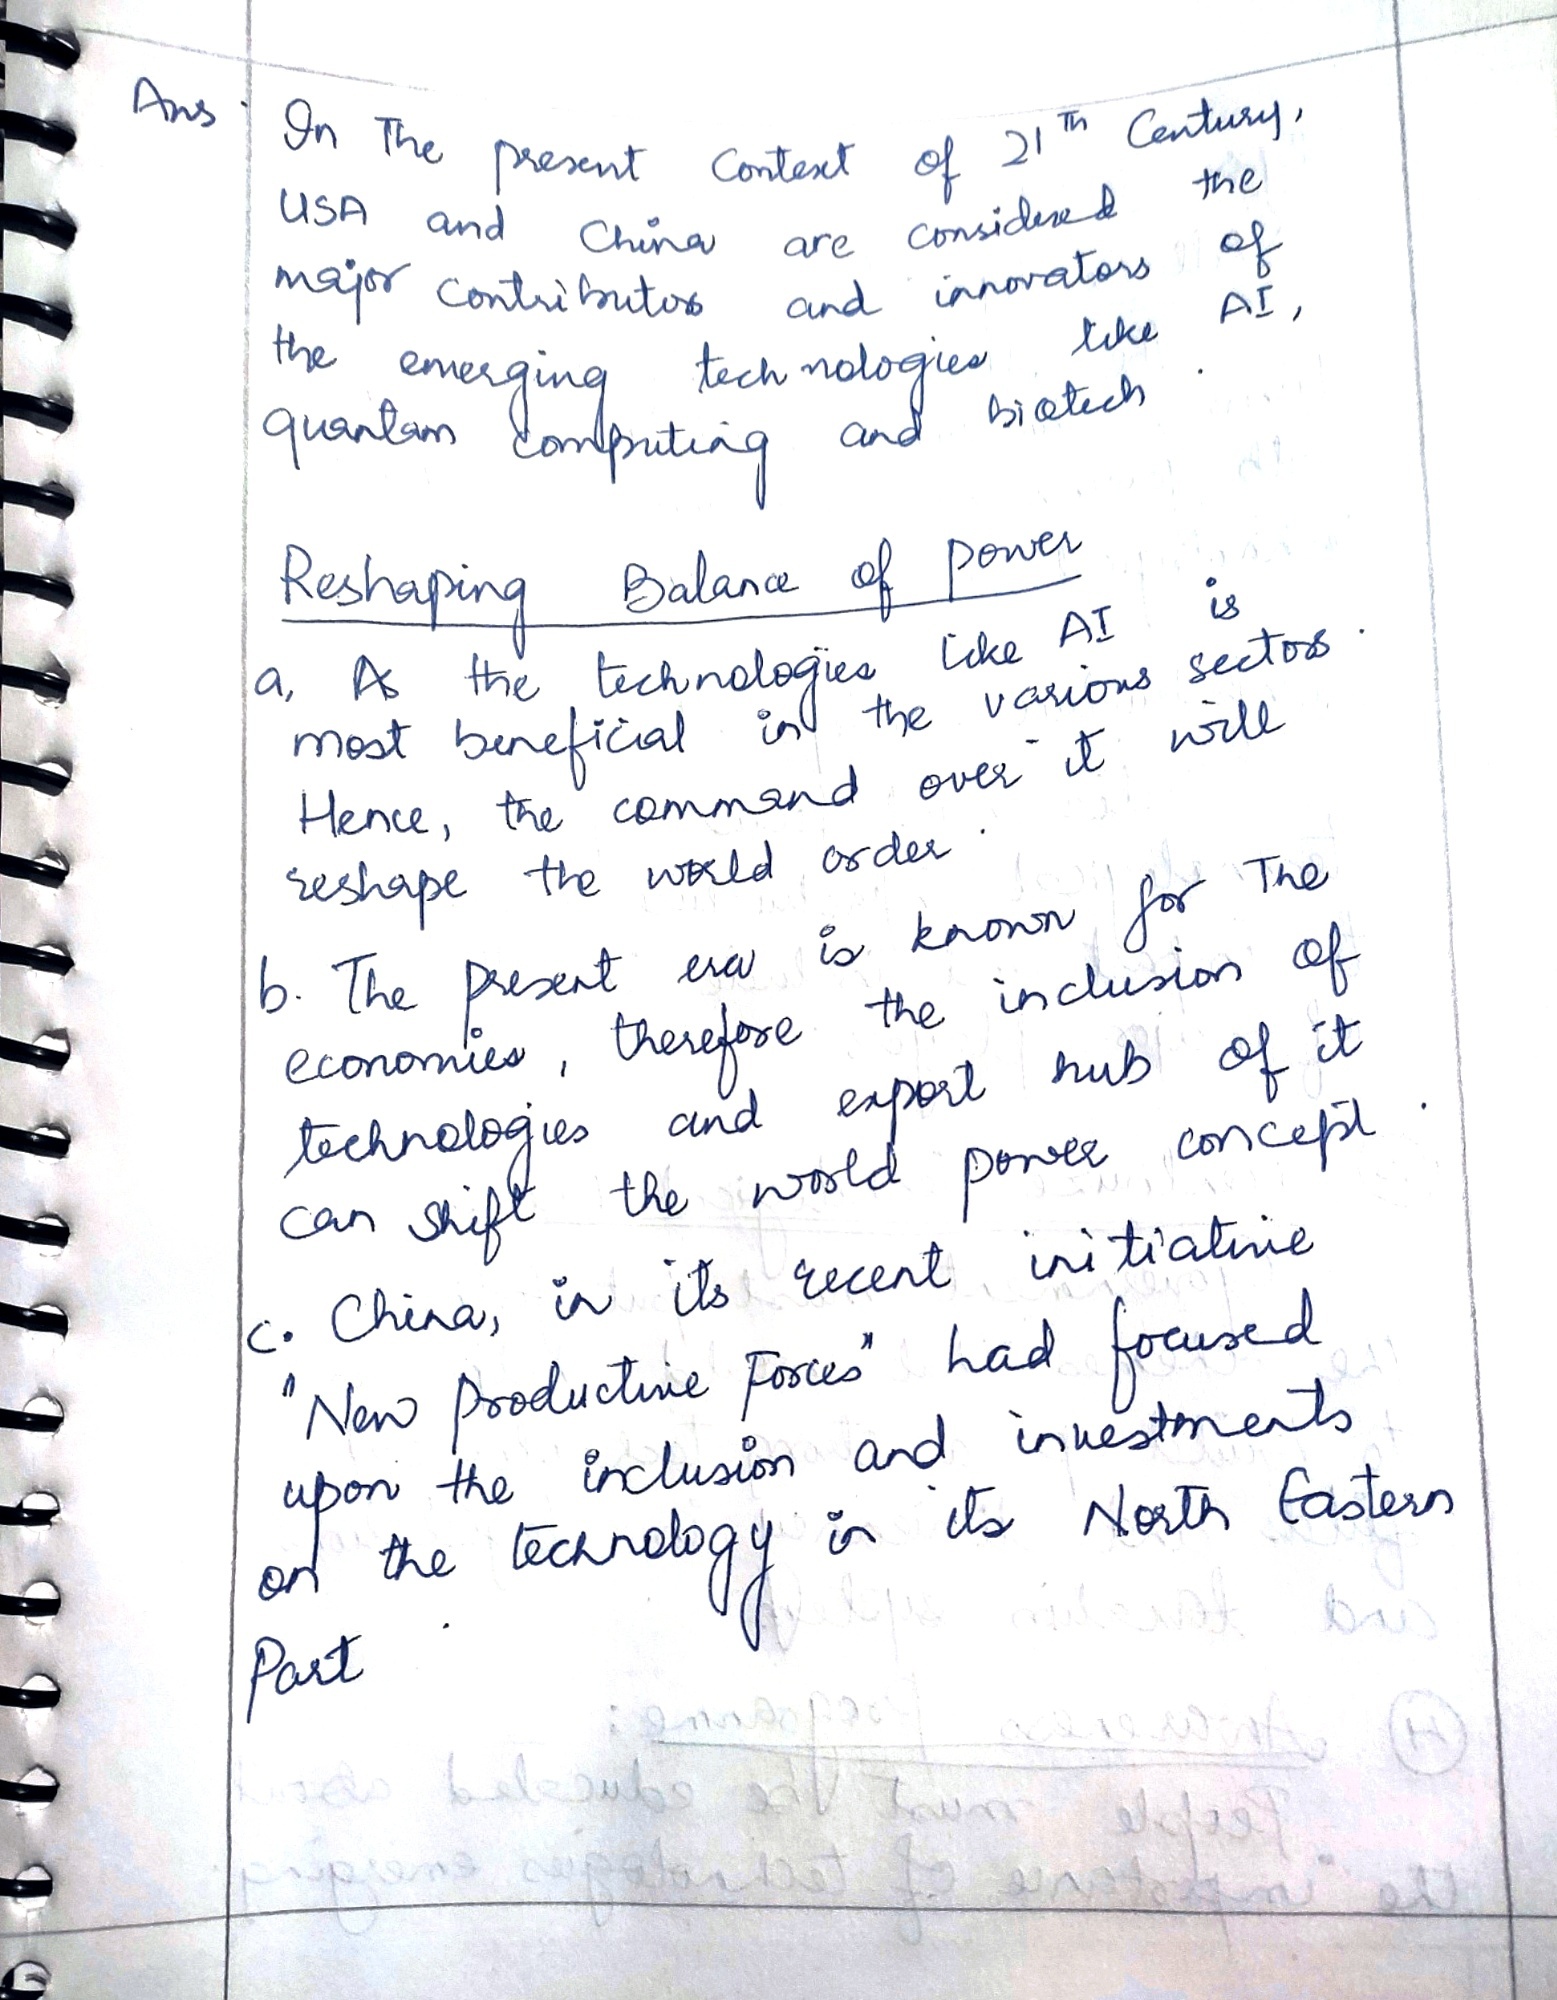 Ans. In The present Context of 21th Century,
USA and China are considered the
major contributors and innovators of
the emerging technologies like AI,
quantam computing and biotech.
Reshaping Balance of power
a, As the technologies like AI is
most beneficial in the various sectors.
Hence, the command over it will
reshape the world order.
b. The present era is known for The
economies, therefore the inclusion of
technologies and export hub of it
can shift the world power concept.
c. China, in its recent initiative
"New Productive Forces" had focused
upon the inclusion and investments
on the technology in its North Eastern
Part.